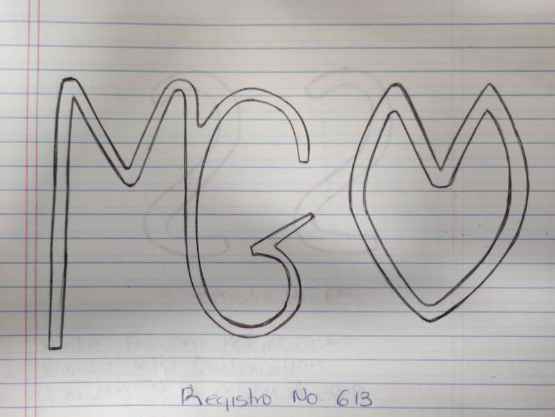 MG
Registro No. 613